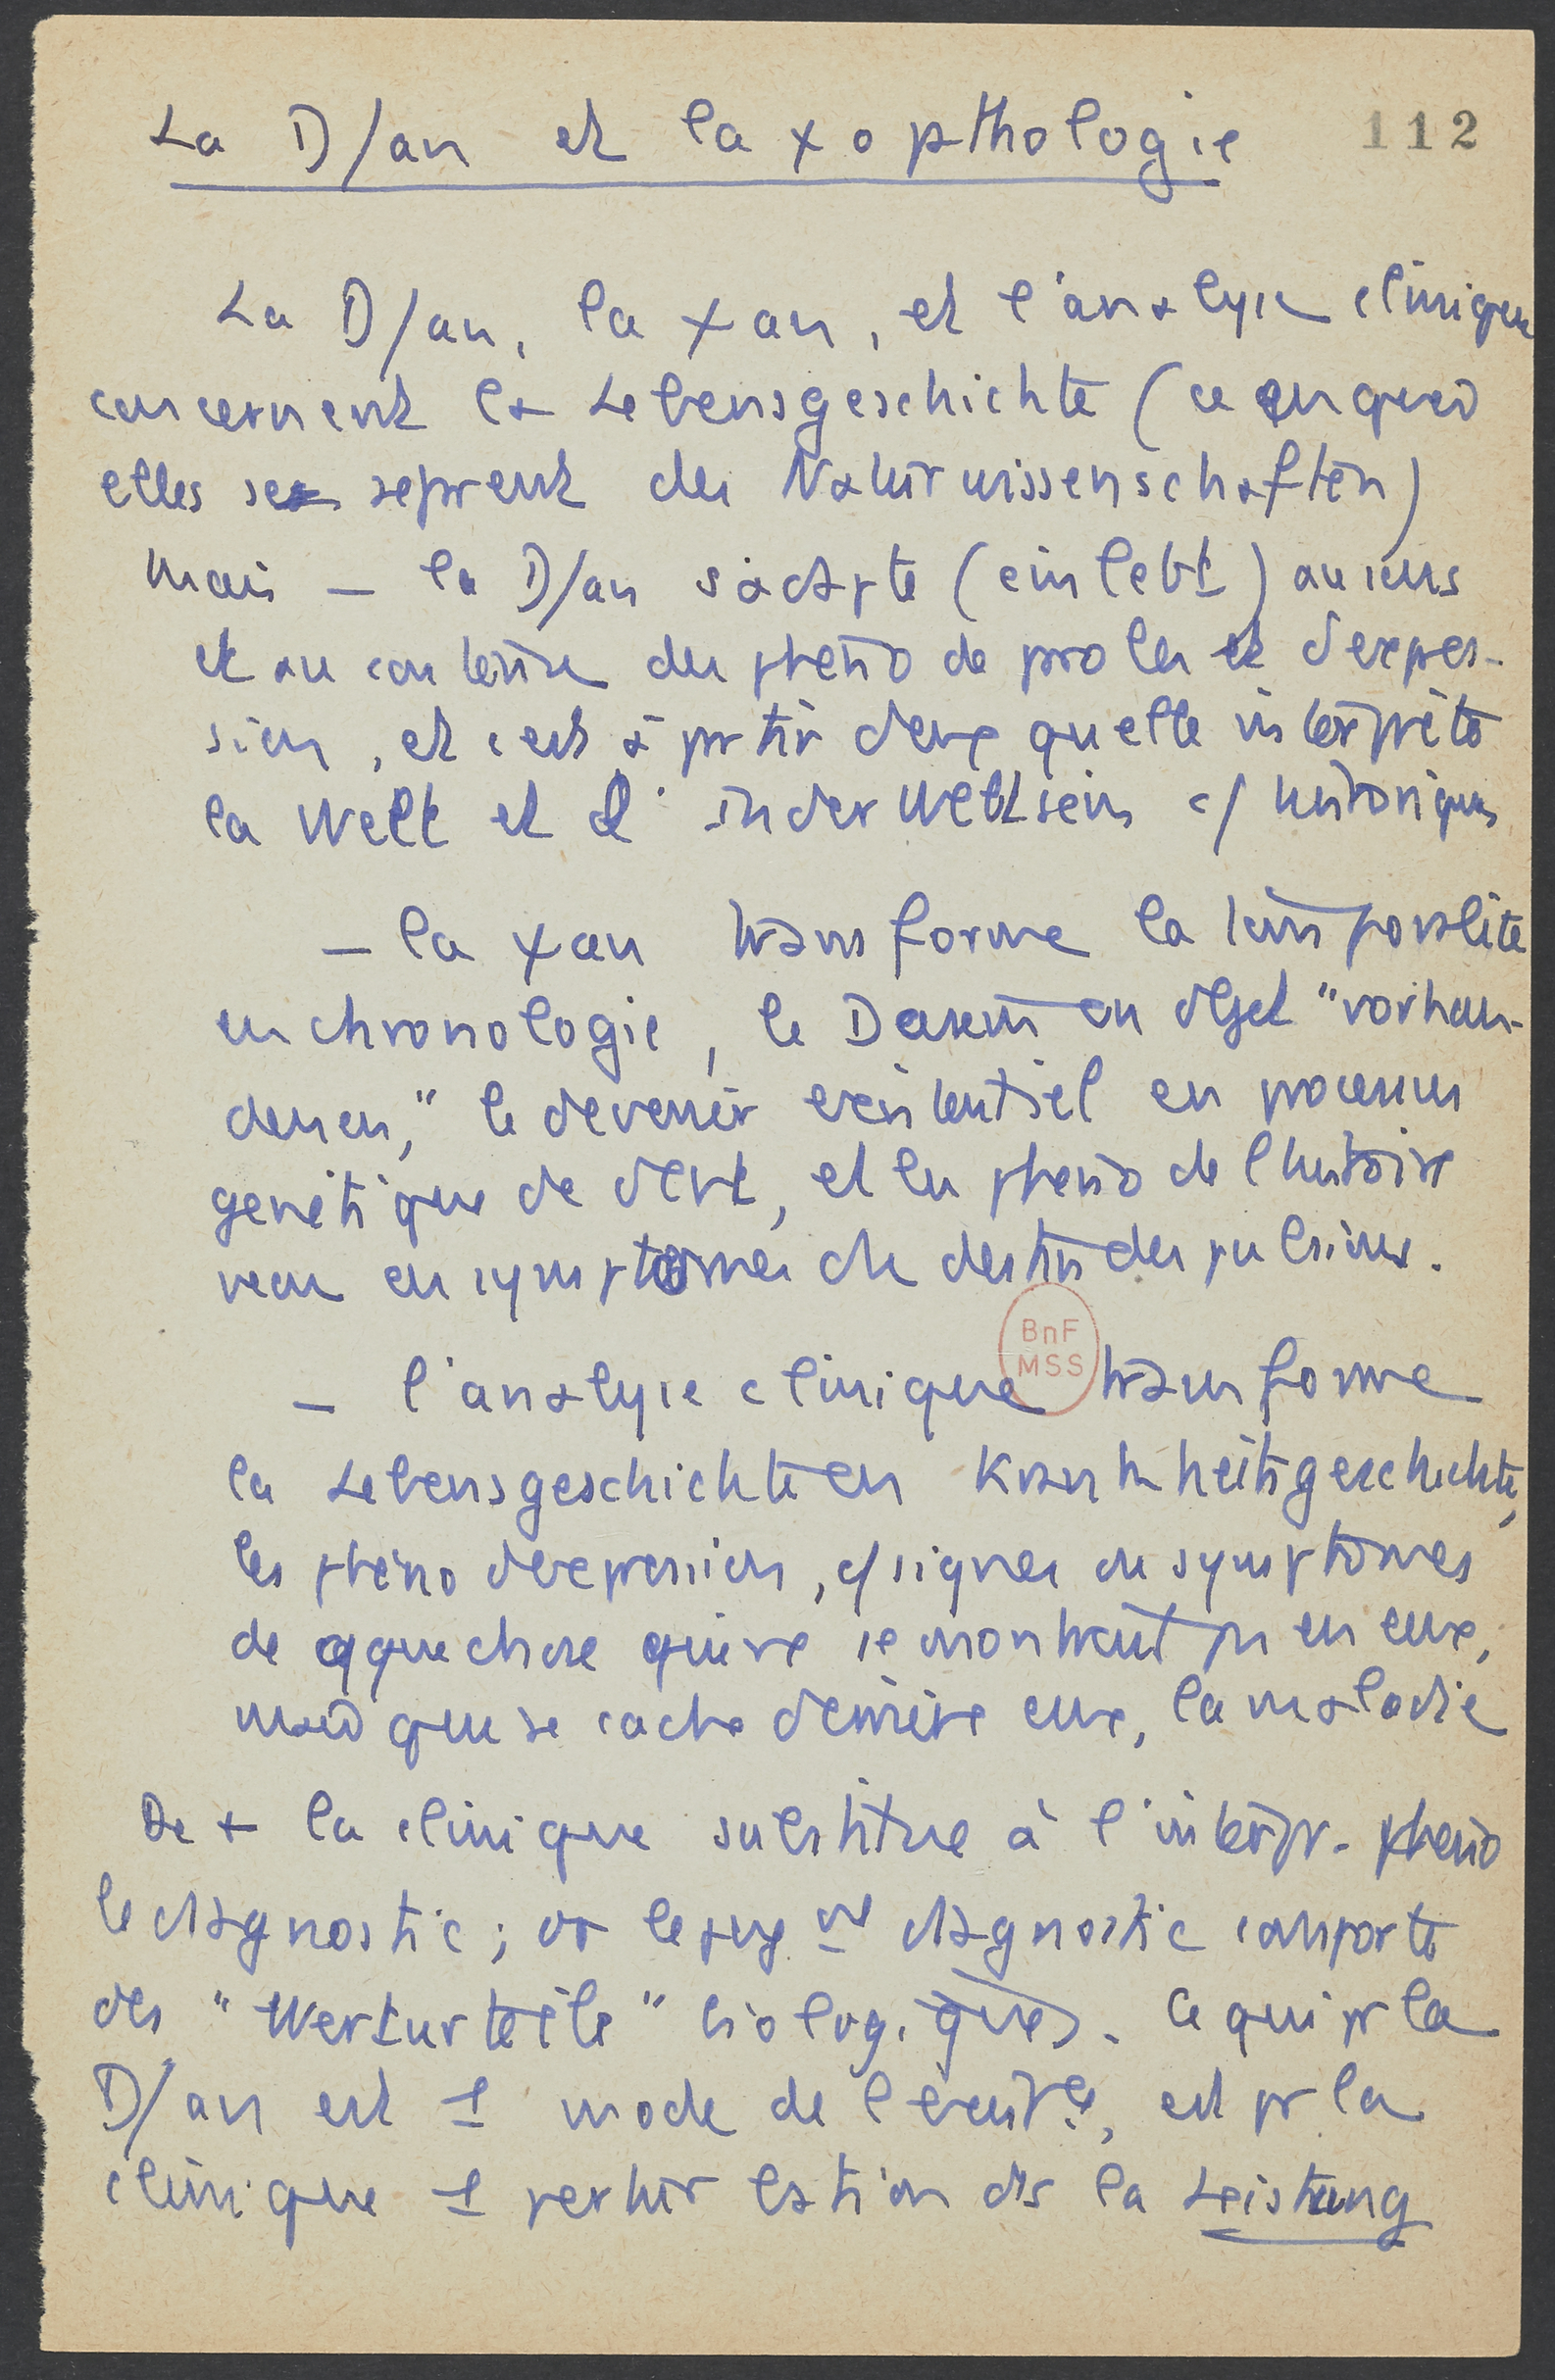 La D/an et la χopthologie
112
La D/an, la χan, et l'analyse clinique
concernent la Lebensgeschichte (ce en quoi
elles se séprent des Naturwissenschaften)
Mais – la D/an s'adapte (einlebt) au sens
et au contenu des phéno de parole et d'expres-
sion, et c'est à prtir d'eux qu'elle interprète
la Welt et l' In der Weltsein c/ historiques
– la χan transforme la temporalité
en chronologie, le Dasein en objet "vorhan-
denen," le devenir existentiel en processus
génétique de dévt, et les phéno de l'histoire
vécue en symptômes du destin des pulsions.
BnF
MSS
– l'analyse clinique transforme
la Lebensgeschichte en Krankheitsgeschichte,
les phéno d'expression, c/ signes ou symptômes
de qque chose qui ne se montrait ps en eux,
mais qui se cache derrière eux, la maladie
De + la clinique substitue à l'interpr. phéno
le diagnostic; or diagnostic comporte
des "Werturteile" biologiques. Ce qui pr la
D/an est 1 mode de l'existce, est pr la
clinique 1 perturbation ds la Leistung